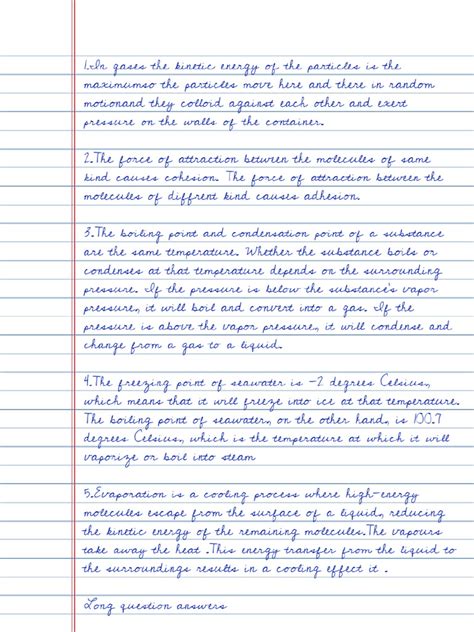 1.In gases the kinetic energy of the particles is the
maximumso the particles move here and there in random
motionand they colloid against each other and exert
pressure on the walls of the container.
2.The force of attraction between the molecules of same
kind causes cohesion. The force of attraction between the
molecules of diffrent kind causes adhesion.
3.The boiling point and condensation point of a substance
are the same temperature. Whether the substance boils or
condenses at that temperature depends on the surrounding
pressure. If the pressure is below the substance's vapor
pressure, it will boil and convert into a gas. If the
pressure is above the vapor pressure, it will condense and
change from a gas to a liquid.
4.The freezing point of seawater is -2 degrees Celsius,
which means that it will freeze into ice at that temperature.
The boiling point of seawater, on the other hand, is 100.7
degrees Celsius, which is the temperature at which it will
vaporize or boil into steam
5.Evaporation is a cooling process where high-energy
molecules escape from the surface of a liquid, reducing
the kinetic energy of the remaining molecules.The vapours
take away the heat .This energy transfer from the liquid to
the surroundings results in a cooling effect it .
Long question answers